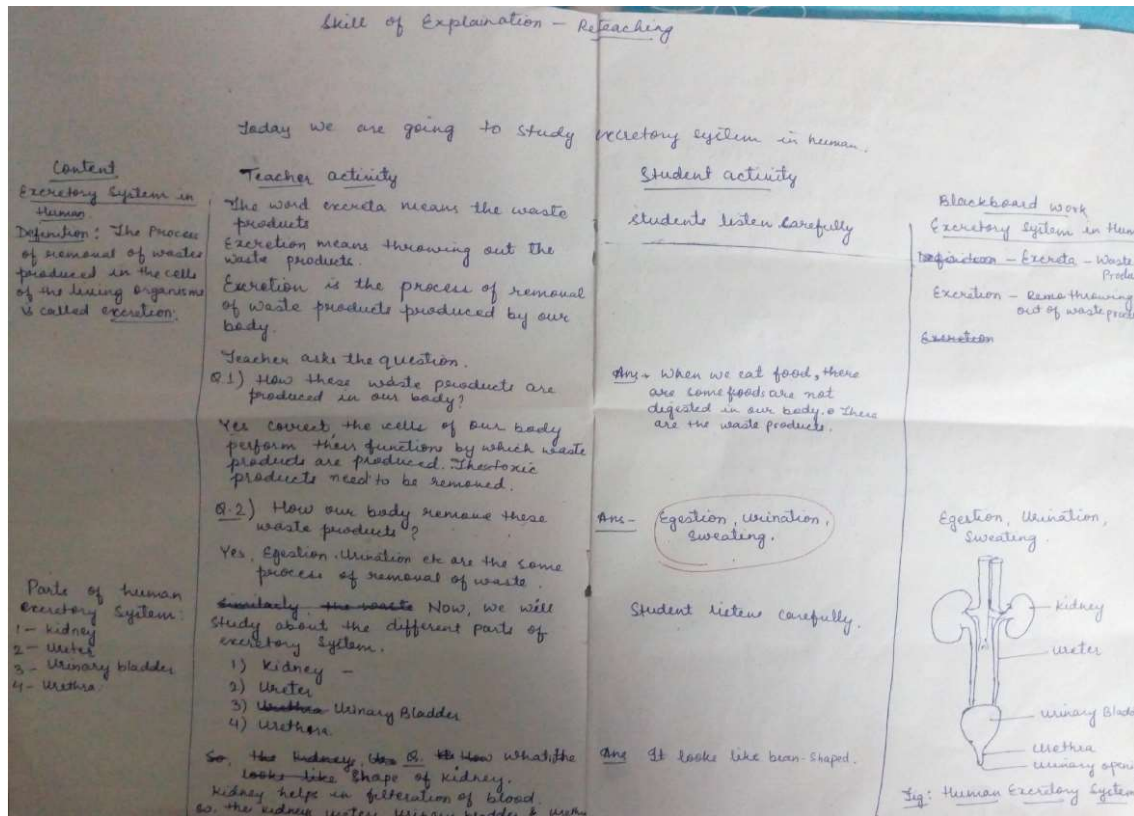 Skill of Explaination - Reteaching
Today we are going to study excretory system in human.
Content
Excretory System in
Human
Definition: The Process
of removal of wastes
produced in the cells
of the living organisms
is called excretion:
Parts of human
excretory System:
1 - Kidney
2 - Ureter
3 - Urinary bladder
4 - Urethra
Teacher activity
The word excreta means the waste
products
Excretion means throwing out the
waste products.
Excretion is the process of removal
of waste products produced by our
body.
Teacher asks the question.
Q.1) How these waste products are
produced in our body?
Yes correct the cells of our body
perform their function by which waste
products are produced. The toxic
products need to be removed.
Q.2) How our body remove these
waste products?
Yes, Egestion, Urination etc are the some
process of removal of waste.
Similarly, the waste Now, we will
study about the different parts of
excretory System.
1) Kidney -
2) Ureter
3) Urethra Urinary Bladder
4) Urethra
So, the kidney, Q. How what, the
looks like Shape of kidney.
Kidney helps in filteration of blood.
So, the kidney, ureter, urinary bladder &
Student activity
Students listen carefully
Ans - When we eat food, there
are some foods are not
digested in our body. There
are the waste products.
Ans - Egestion, Urination,
Sweating.
Student listens carefully.
Ans It looks like bean-shaped.
Blackboard work
Excretory System in Hum
Definition - Excreta - Waste
Produ
Excretion - Remo throwing
out of waste prod
Excretion
Egestion, Urination,
Sweating.
Kidney
Ureter
Urinary Bladd
Urethra
Urinary openi
Fig: Human Excretory System